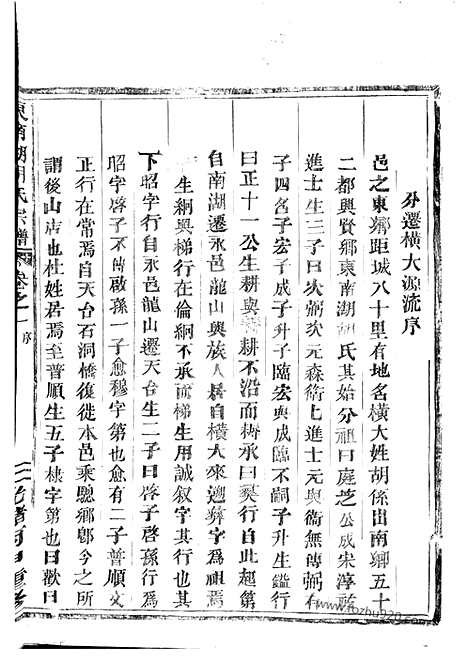 分遷橫大源流序
邑之東鄉距城八十里有地名橫大姓胡係出南鄉五十
二都興賢鄉東南湖胡氏其始分祖曰庭芝公成宋淳祐
進士生三子曰次弼次元森衛上進士元與衛無傳弼存
子四名子宏子成子升子臨宏與成臨不嗣子升生鎰行
曰正十一公生耕與耕不沿而梅承曰癸行自此起第
自南湖遷永邑龍山與族人居自橫大來廸彛字為祖焉
生綱與梯行在倫綱不承而梯生用誠叙字其行也其
下昭字行自永邑龍山遷天台生二子曰啓子啓孫行為
昭字啓子不傳啟孫一子愈穆字第也愈有二子普順文
正行在常焉自天台石洞橋復徙本邑乘驄鄉鄉今之所
謂後山店也杜姓君焉至普順生五子棣字第也曰歡曰
東南湖胡氏宗譜
卷之一
序